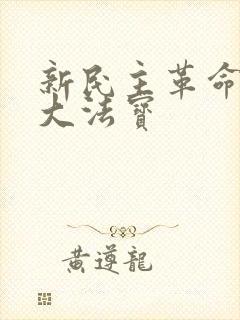 新民主革命
大法寶
黄遵龍